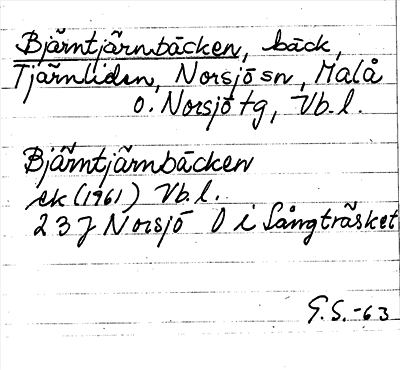 Bjärntjärnbäcken, bäck,
Tjärnliden, Norsjö sn, Malå
o. Norsjö tg, Vb. l.
Bjärntjärnbäcken
ek (1961) Vb. l.
23 J Norsjö O i Långträsket
G.S.-63